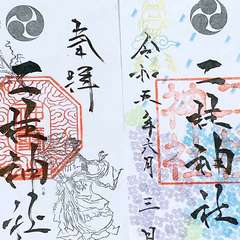 二柱神社
令和五年六月三日
奉拝
二柱神社